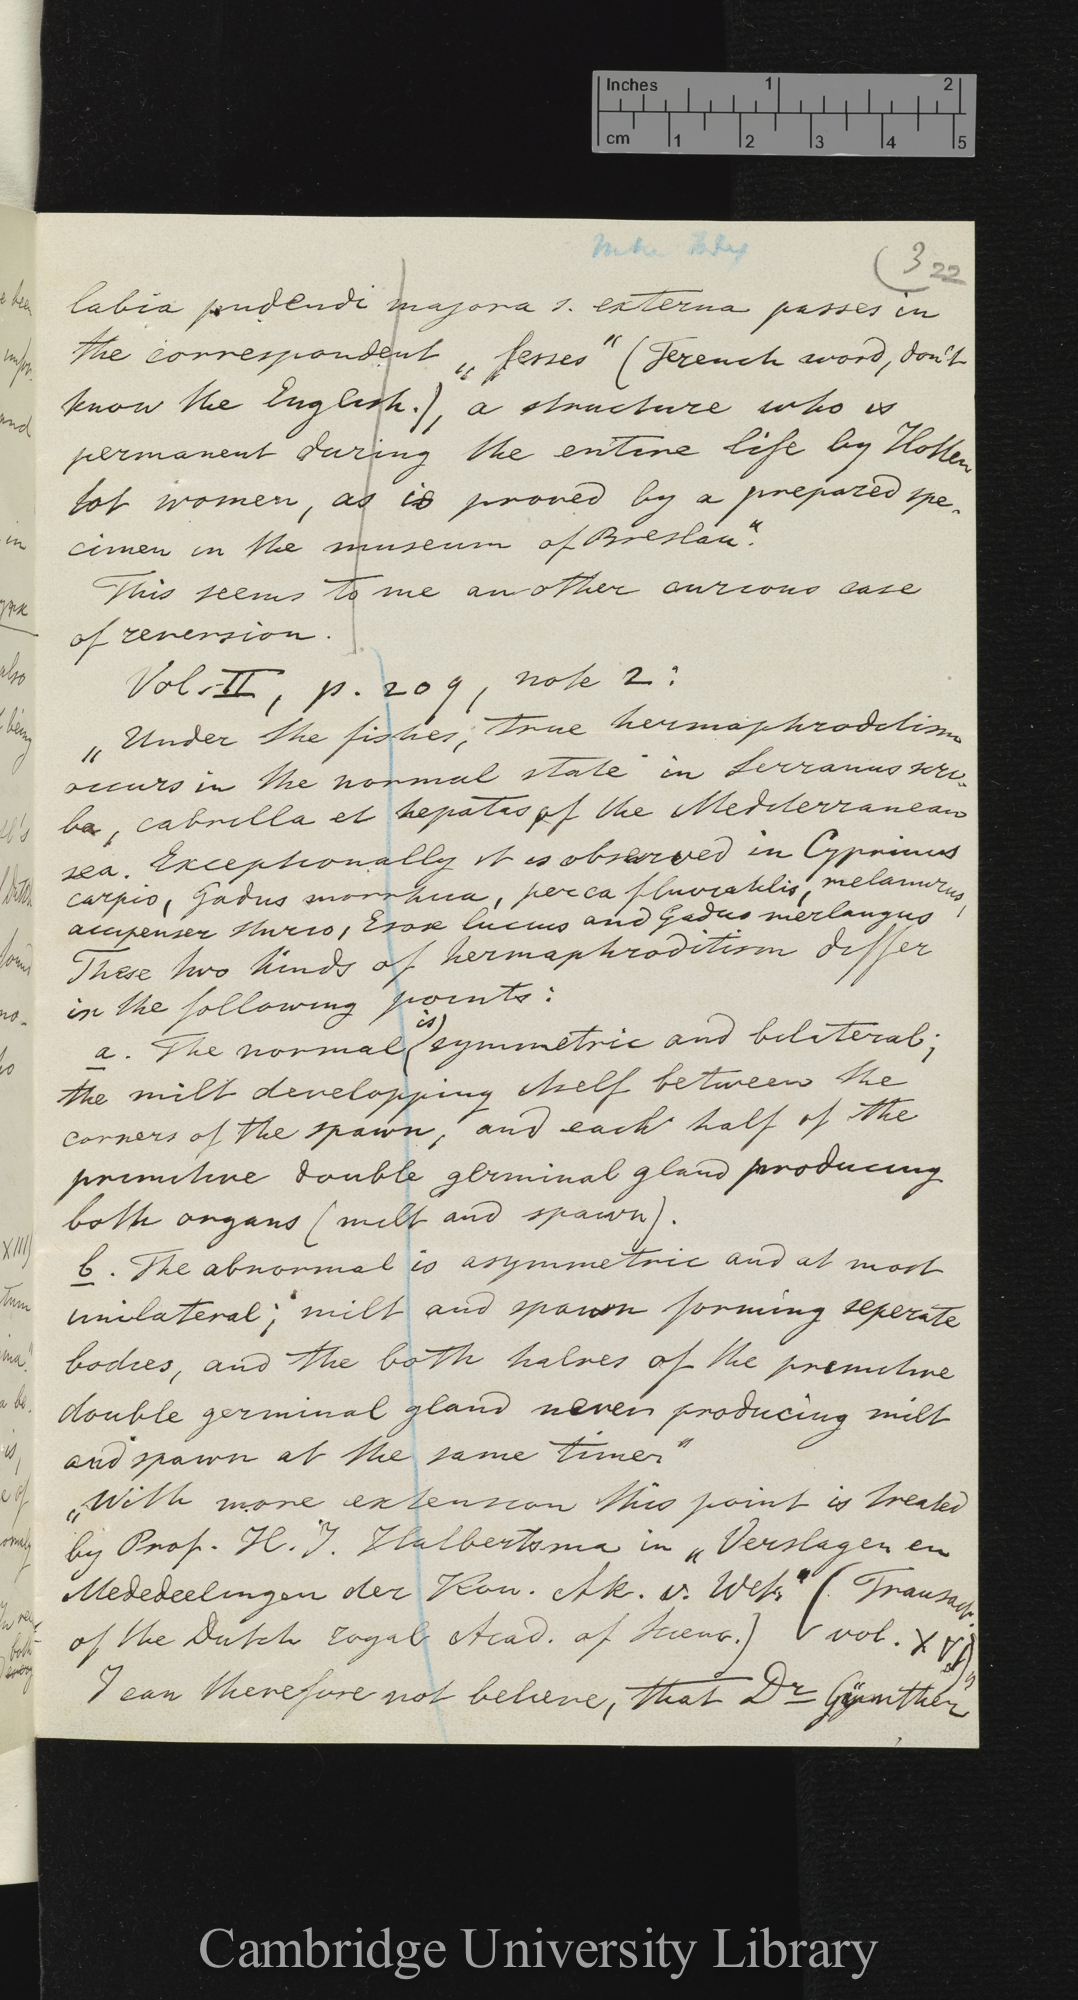 Inches 1 2
cm 1 2 3 4 5
(3 22
labia pudendi majora s. externa passes in
the correspondent „fesses“ (French word, don't
know the English.), a structure who is
permanent during the entire life by Hotten
tot women, as is proved by a prepared spe-
cimen in the museum of Breslau“.
This seems to me another curious case
of reversion.
Vol. II, p. 209, note 2:
„Under the fishes, true hermaphroditism
occurs in the normal state in Serranus scri-
ba, cabrilla et hepatus of the Mediterranean
sea. Exceptionally it is observed in Cyprinus
carpio, Gadus morrhua, perca fluviatilis, melanurus,
accipenser sturio, Esox lucius and Gadus merlangus
These two kinds of hermaphroditism differ
in the following points:
a. The normal (is) symmetric and bilateral;
the milt developping itself between the
corners of the spawn, and each half of the
primitive double germinal gland producing
both organs (milt and spawn).
b. The abnormal is asymmetric and at most
unilateral; milt and spawn forming seperate
bodies, and the both halves of the primitive
double germinal gland never producing milt
and spawn at the same time.“
„With more extension this point is treated
by Prof. H. J. Halbertsma in „Verslagen en
Mededeelingen der Kon. Ak. v. Wet.“ (Transact.
of the Dutch royal Acad. of Scienc.) vol. XVI
I can therefore not believe, that Dr Günther
Cambridge University Library